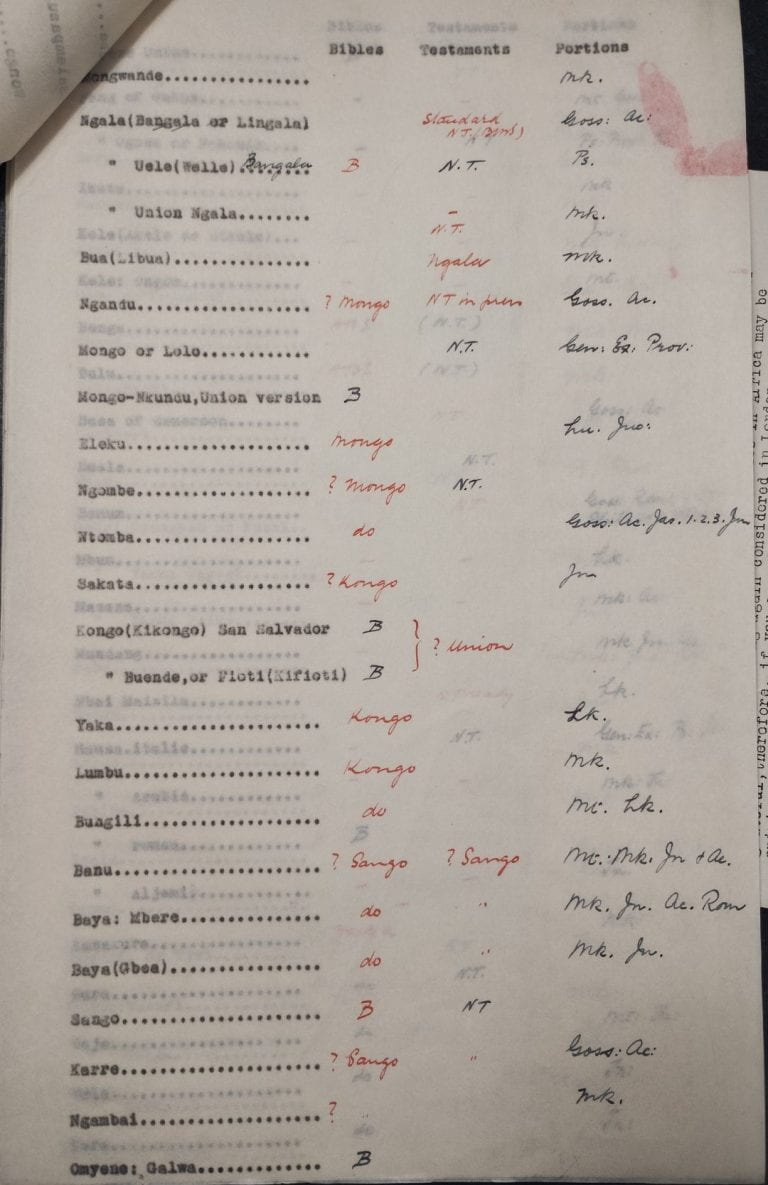 Bibles Testaments Portions
Mongwande................. Mk.
Ngala(Bangala or Lingala) Standard N.T. (Binds) Goss: Ac:
" Uele(Welle) Bangala ........ B N.T. Ps.
" Union Ngala........ – N.T. Mk.
Bua(Libua)................ Ngala Mk.
Ngandu.................... ? Mongo NT in press Goss. Ac.
Mongo or Lolo............. N.T. Gen: Ex: Prov:
Mongo-Nkundu,Union version B
Eleku..................... Mongo Lu. Jno:
Ngombe.................... ? Mongo N.T.
Ntomba.................... do Goss: Ac. Jas. 1.2.3. Jn
Sakata.................... ? Kongo Jn
Kongo(Kikongo) San Salvador B } ? Union
" Buende,or Fioti(Kifioti) B
Yaka...................... Kongo Lk.
Lumbu..................... Kongo Mk.
Bungili................... do Mt. Lk.
Banu...................... ? Sango ? Sango Mt. Mk. Jn + Ac.
Baya: Mbere............... do " Mk. Jn. Ac. Rom
Baya(Gbea)................ do " Mk. Jn.
Sango..................... B NT
Karre..................... ? Sango " Goss: Ac:
Ngambai................... ? " Mk.
Omyene: Galwa............. B
again considered in London
in Africa may be
therefore, if